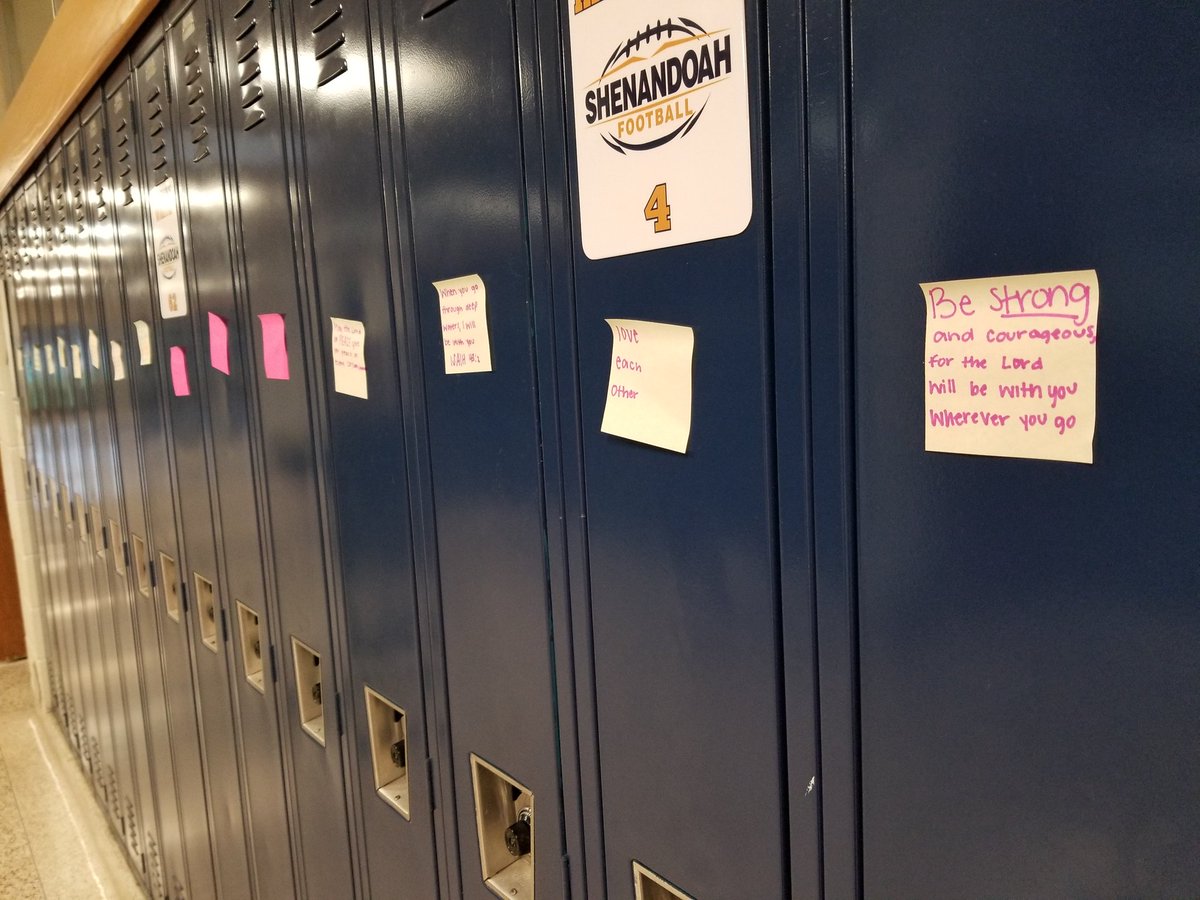 SHENANDOAH
FOOTBALL
4
SHENANDOAH
When you go
through deep
waters, I will
be with you
love
each
other
Be Strong
and courageous,
for the Lord
will be with you
wherever you go